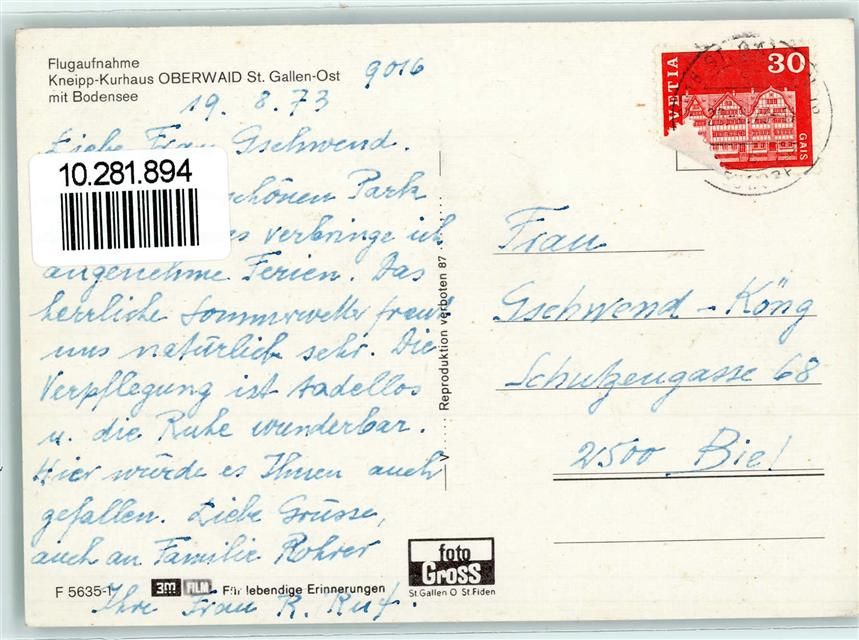 Flugaufnahme
Kneipp-Kurhaus OBERWAID St. Gallen-Ost
mit Bodensee
9016
19. 8. 73
Liebe Frau Gschwend.
10.281.894
schönen Park
es verbringe ich
angenehme Ferien. Das
herrliche Sommerwetter freut
uns natürlich sehr. Die
Verpflegung ist tadellos
u. die Ruhe wunderbar.
Hier würde es Ihnen auch
gefallen. Liebe Grüsse,
auch an Familie Rohrer
Ihre Frau R. Ruf.
F 5635-1
3M FILM Für lebendige Erinnerungen
foto
Gross
St.Gallen O St.Fiden
Reproduktion verboten 87
VETIA
30
GAIS
Frau
Gschwend - Köng
Schützengasse 68
2500 Biel